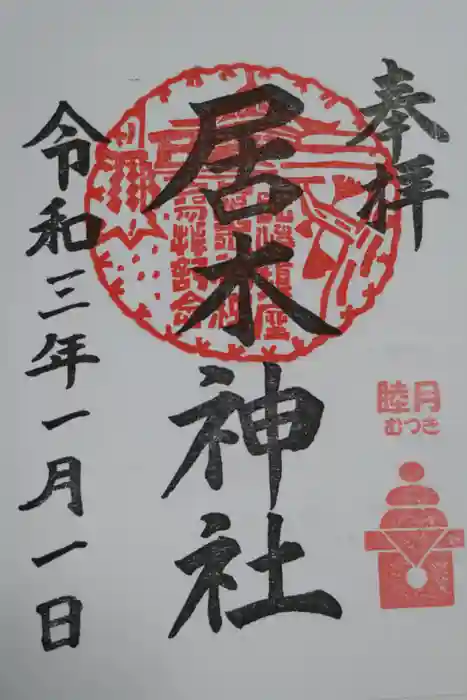 奉拝
居木神社
令和三年一月一日
睦月
むつき